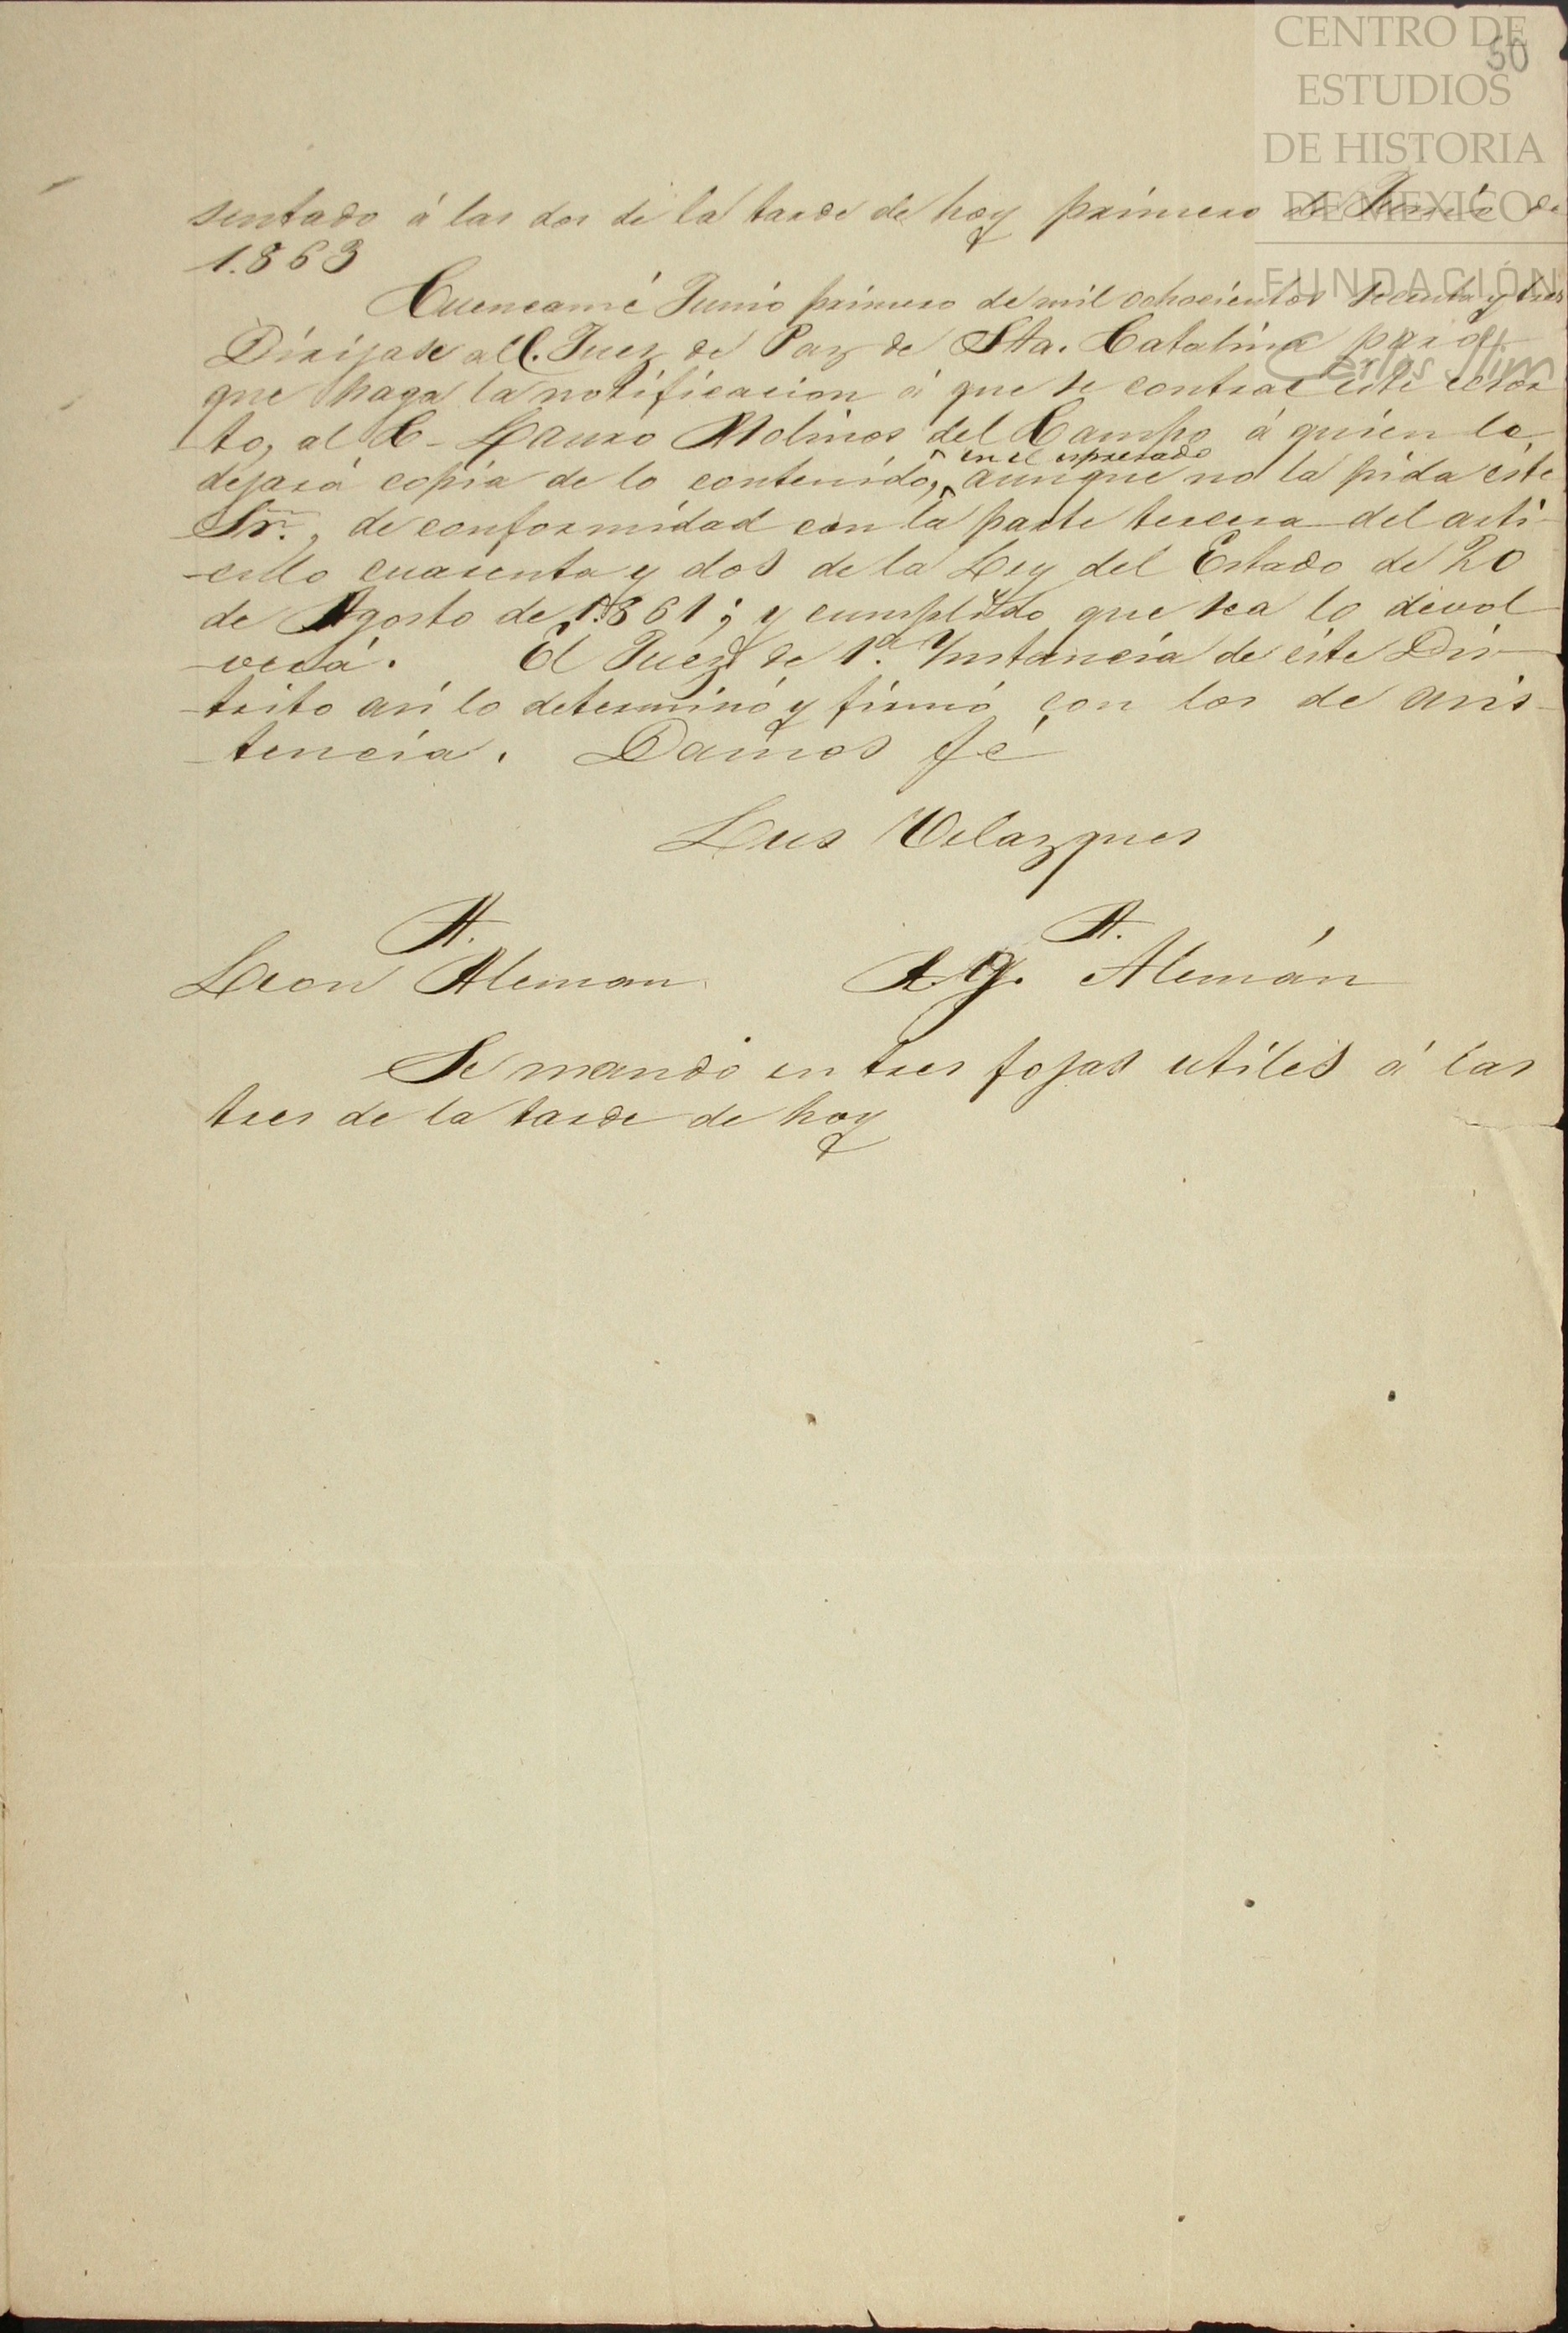 CENTRO DE
ESTUDIOS
DE HISTORIA
DE MEXICO
FUNDACIÓN
Carlos Slim
50
sentado á las dos de la tarde de hoy primero de Junio de
1.863
Cuencamé Junio primero de mil ochocientos secenta y tres
Dirijase al C. Juez de Paz de Sta. Catalina para
que haga la notificacion á que se contrae este escri
to, al C. Lauro Molinos del Campo á quien le
dejará copia de lo contenido, en el espresado aunque no la pida éste
Sr., de conformidad con la parte tercera del arti-
-culo cuarenta y dos de la Ley del Estado de 20
de Agosto de 1.861; y cumplido que sea lo devol
-verá. El Juez de 1a. Instancia de éste Dis-
-trito así lo determinó y firmó con los de asis-
-tencia. Damos fé
Luis Velazques
A. A.
Leon Aleman A. G. Alemán
Se mandó en tres fojas utiles á las
tres de la tarde de hoy